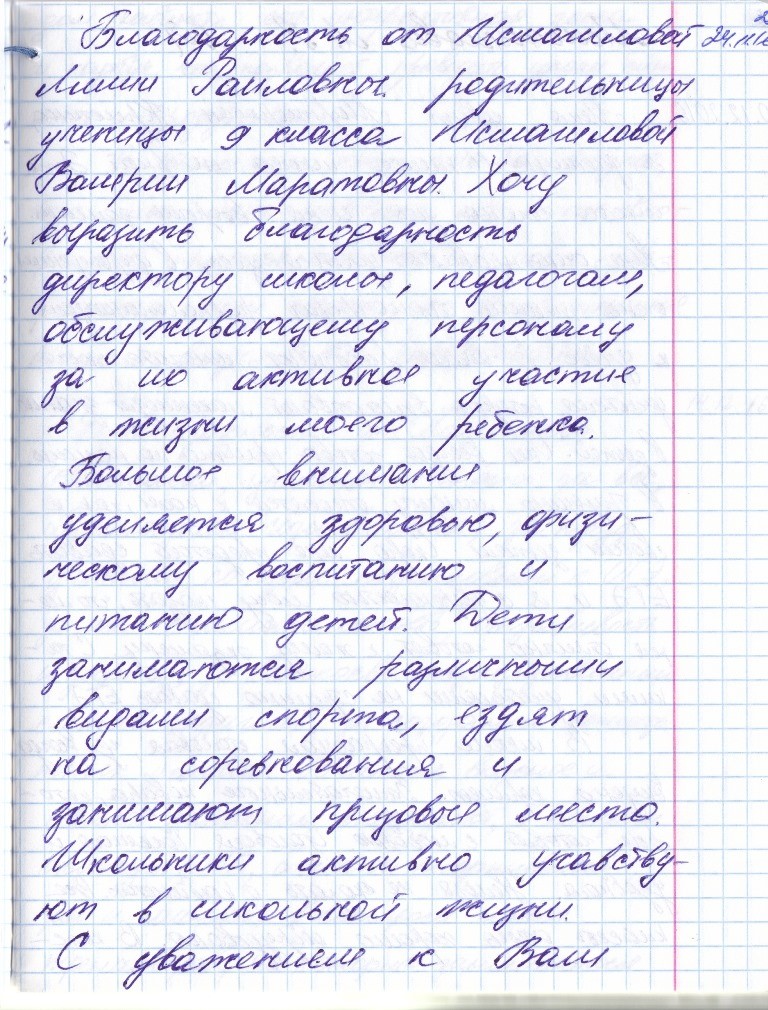 Благодарность от Исмагиловой
Лилии Раиловны родительницы
ученицы 9 класса Исмагиловой
Валерии Маратовны. Хочу
выразить благодарность
директору школы, педагогам,
обслуживающему персоналу
за их активное участие
в жизни моего ребенка.
Большое внимание
уделяется здоровью, физи-
ческому воспитанию и
питанию детей. Дети
занимаются различными
видами спорта, ездят
на соревнования и
занимают призовые места.
Школьники активно учавству-
ют в школьной жизни.
С уважением к Вам